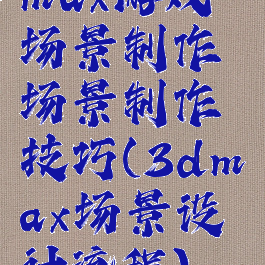 max游戏
场景制作
场景制作
技巧(3dm
ax场景设
计流程)